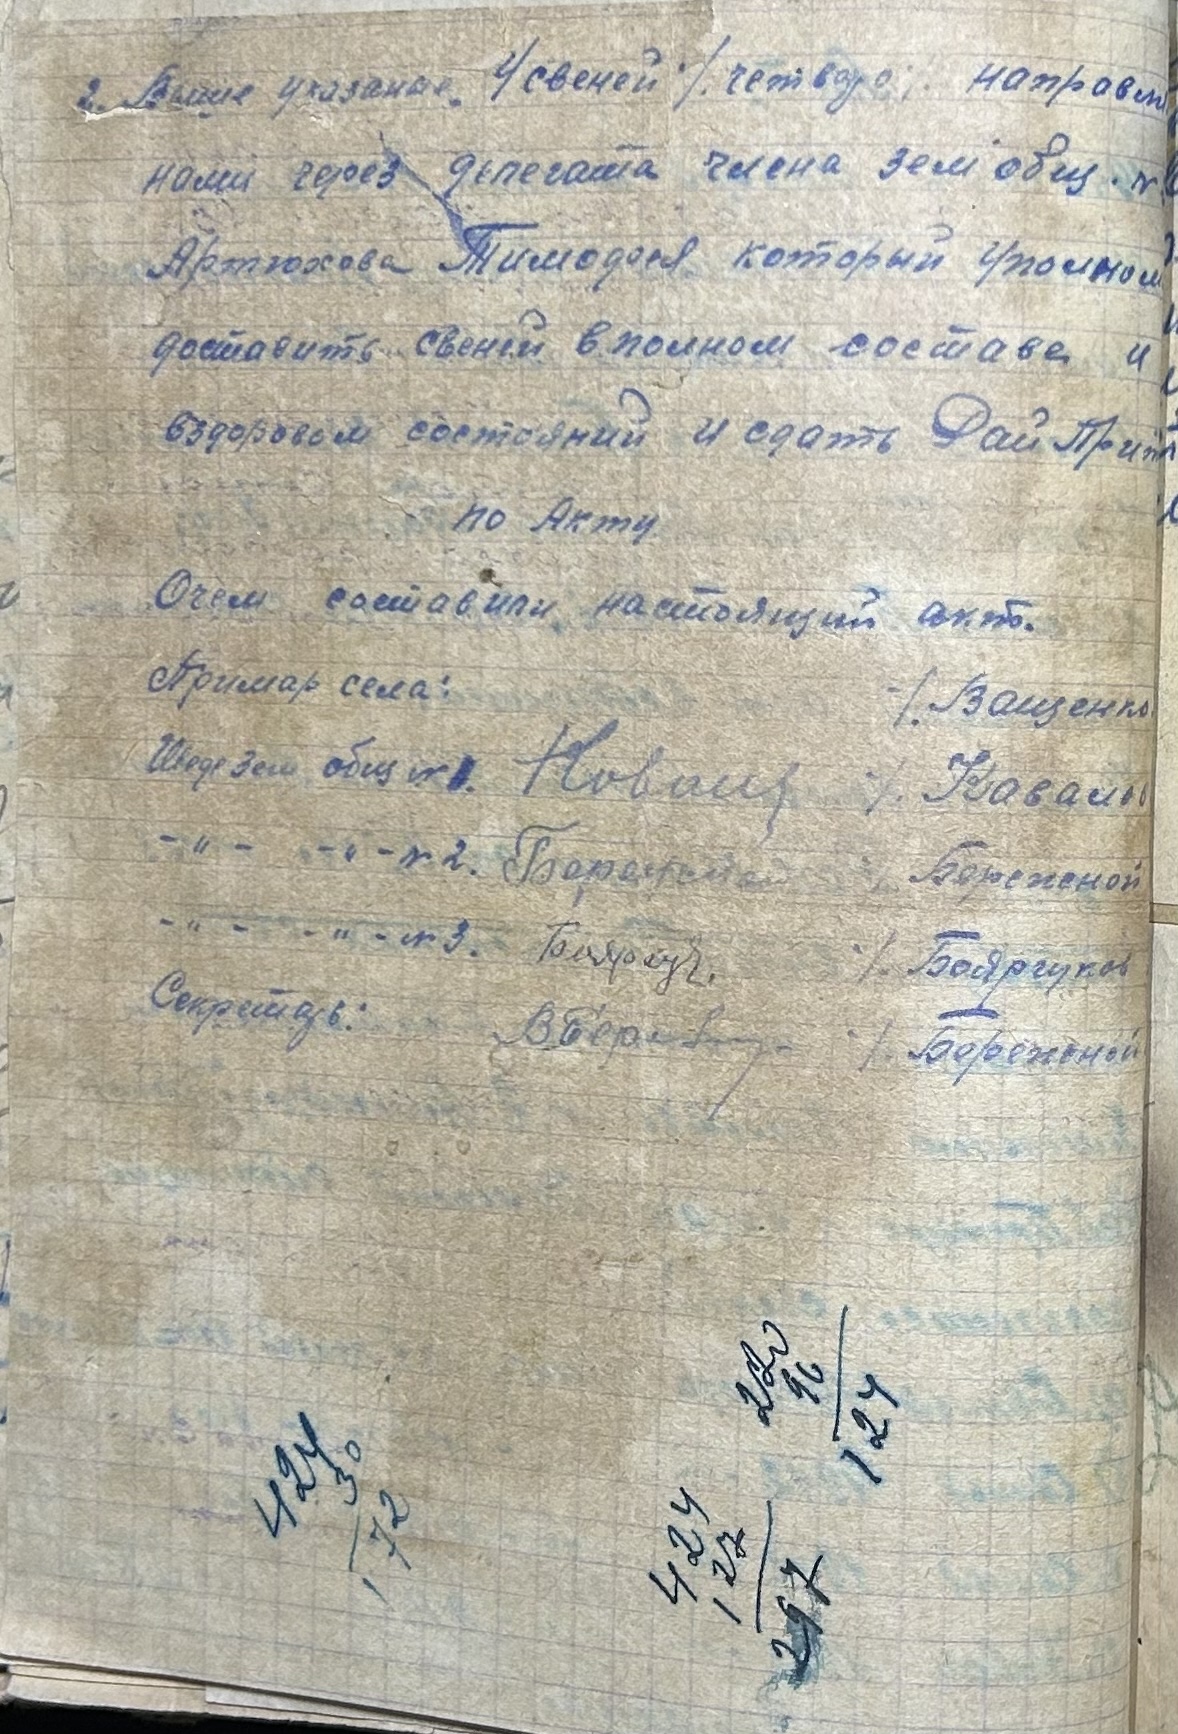 2. Выше указаные 4/свеней /.четверо/. направлен
нами через делегата члена зем общ. №
Артюхова Тимофея который уполном
доставить свеней в полном составе и
вздоровом состояний и сдать Рай Прит
по Акту
Очем составили настоящий акт.
Примар села: /. Ващенко
зем общ №1. Ковалц /. Кавальов
-"- -"- №2. Бережной /. Бережной
-"- -"- №3. Боярчук. /. Боярчуков
Секретарь: /. Бережной
220
96
124
424
30
172
424
127
297